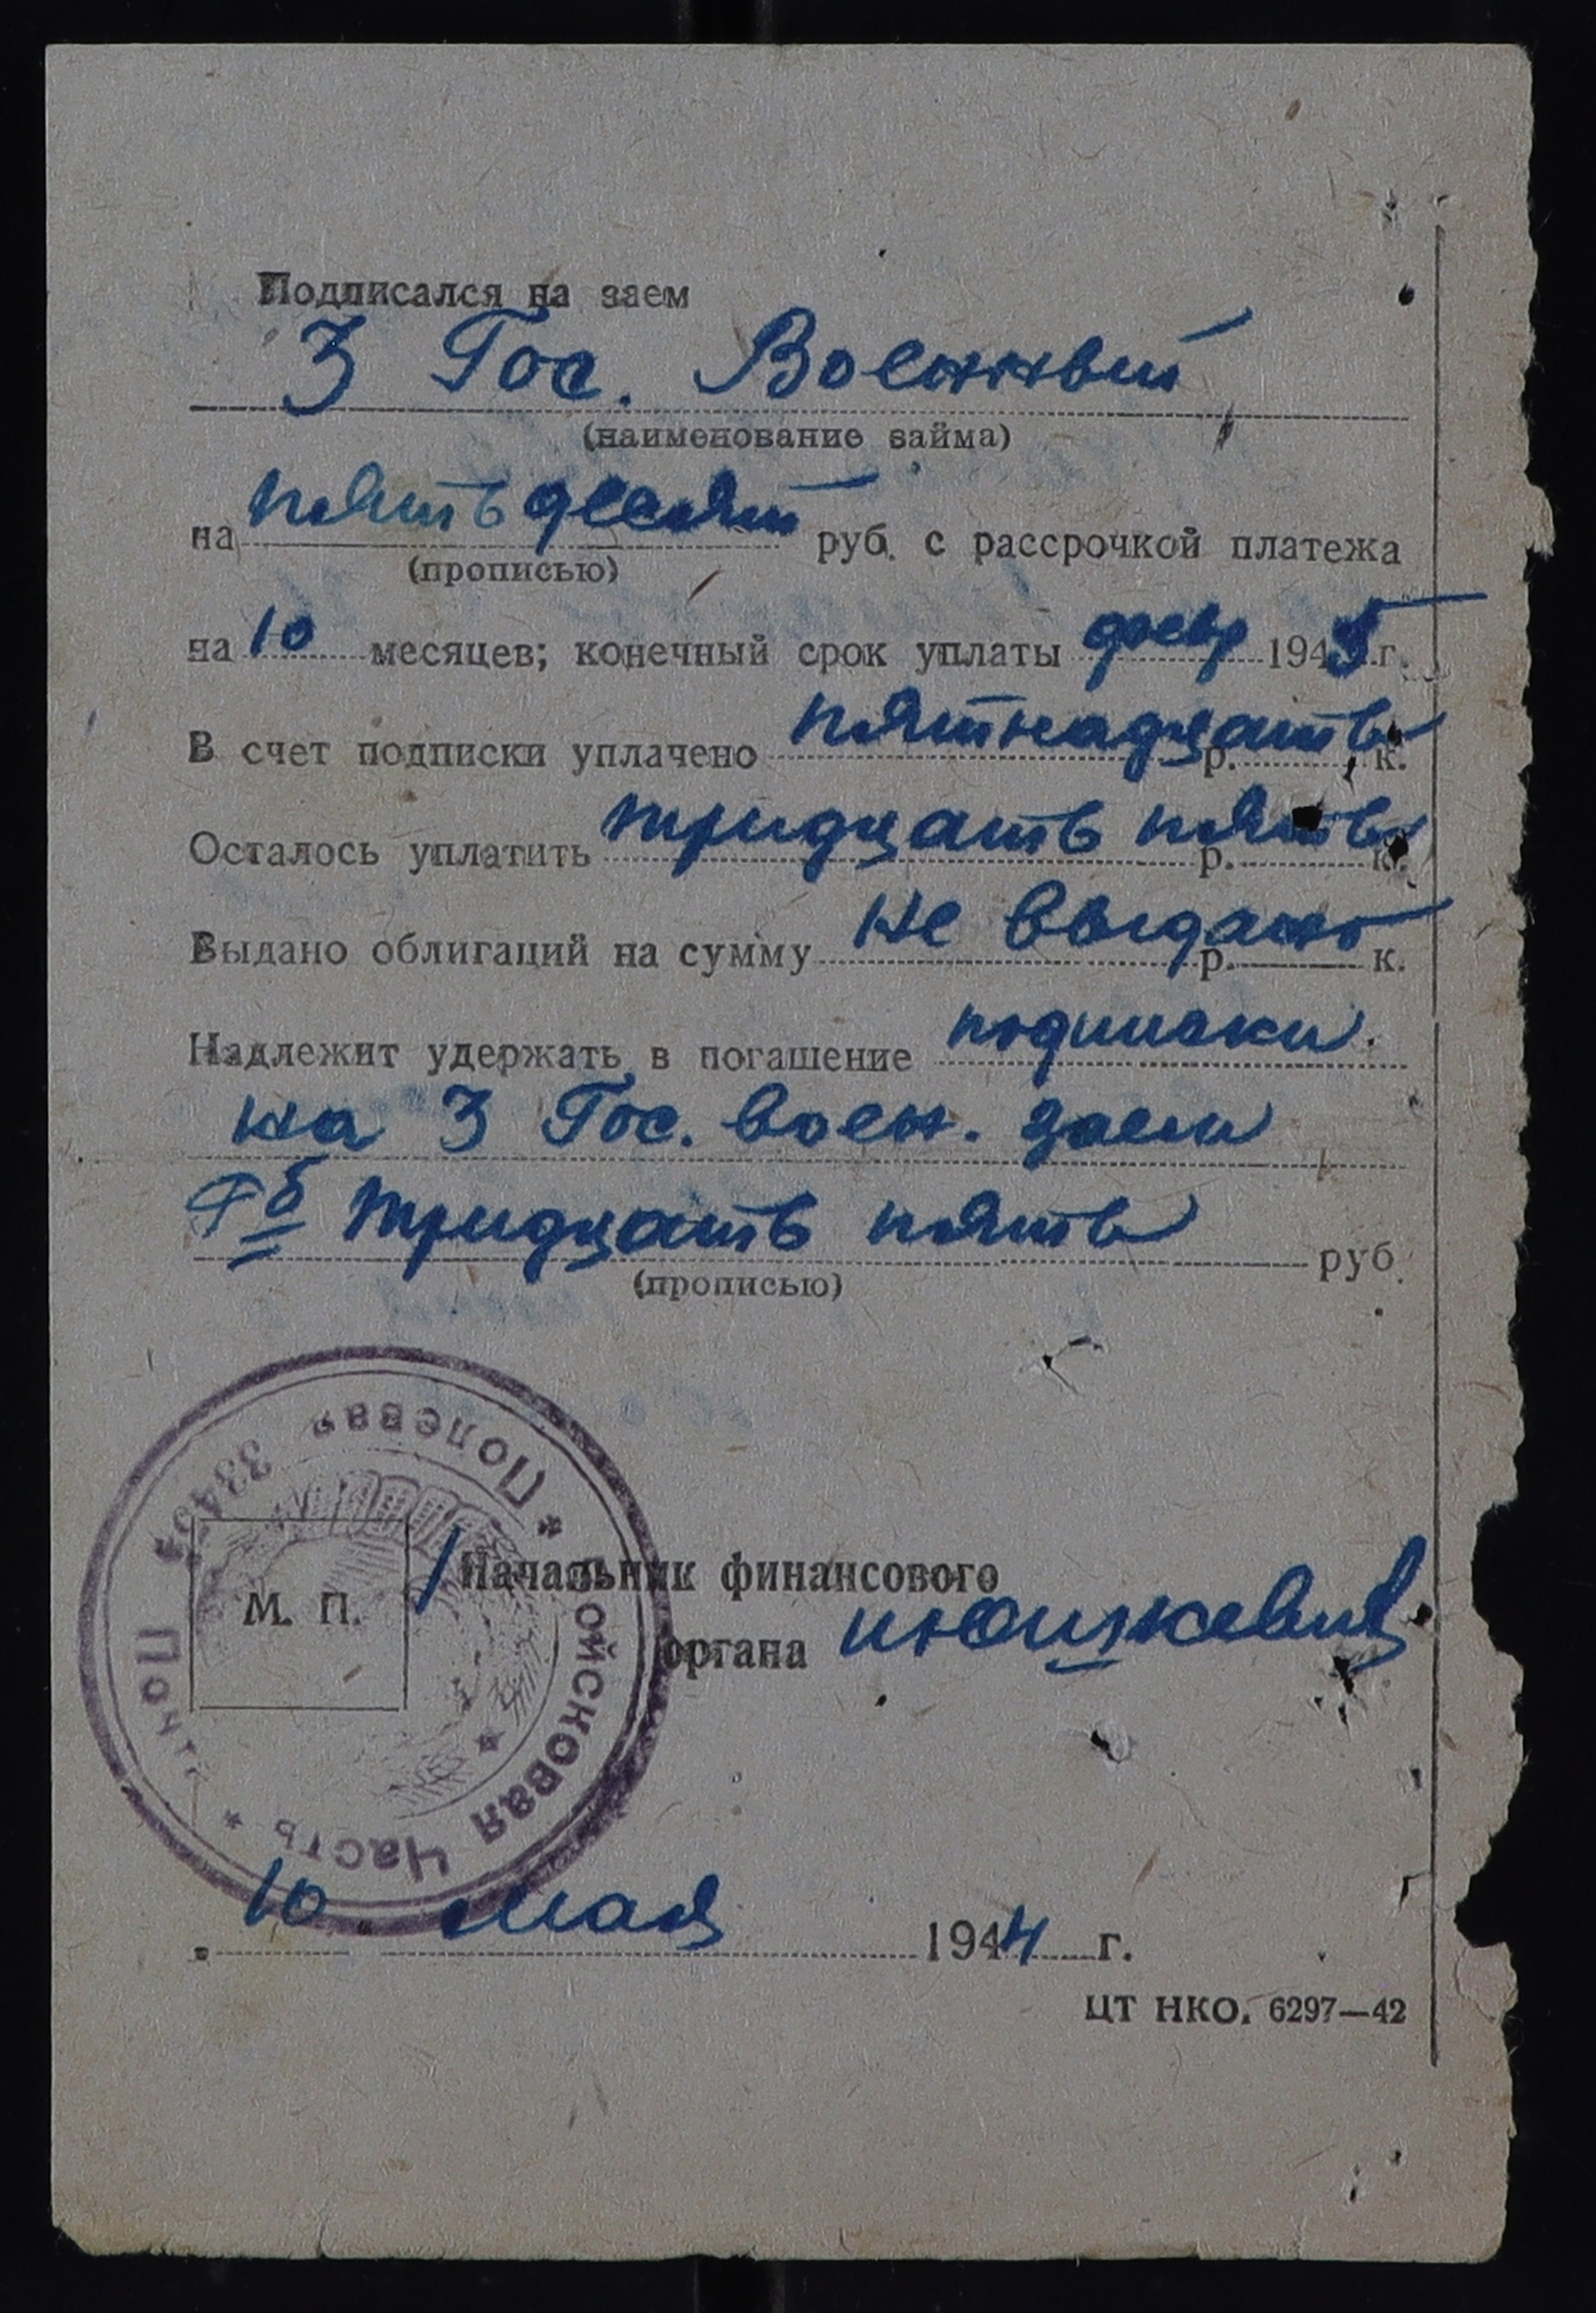 Подписался на заем
3 Гос. Военный
(наименование займа)
на пятьдесят руб. с рассрочкой платежа
(прописью)
на 10 месяцев; конечный срок уплаты февр 1945 г.
В счет подписки уплачено пятнадцать р. к.
Осталось уплатить тридцать пять р. к.
Выдано облигаций на сумму не выдано р. к.
Надлежит удержать в погашение подписки
на 3 Гос. воен. заем
тридцать пять руб.
(прописью)
Полевая Почта
Войсковая Часть
М. П.
Начальник финансового
органа
10 мая 1944 г.
ЦТ НКО. 6297—42